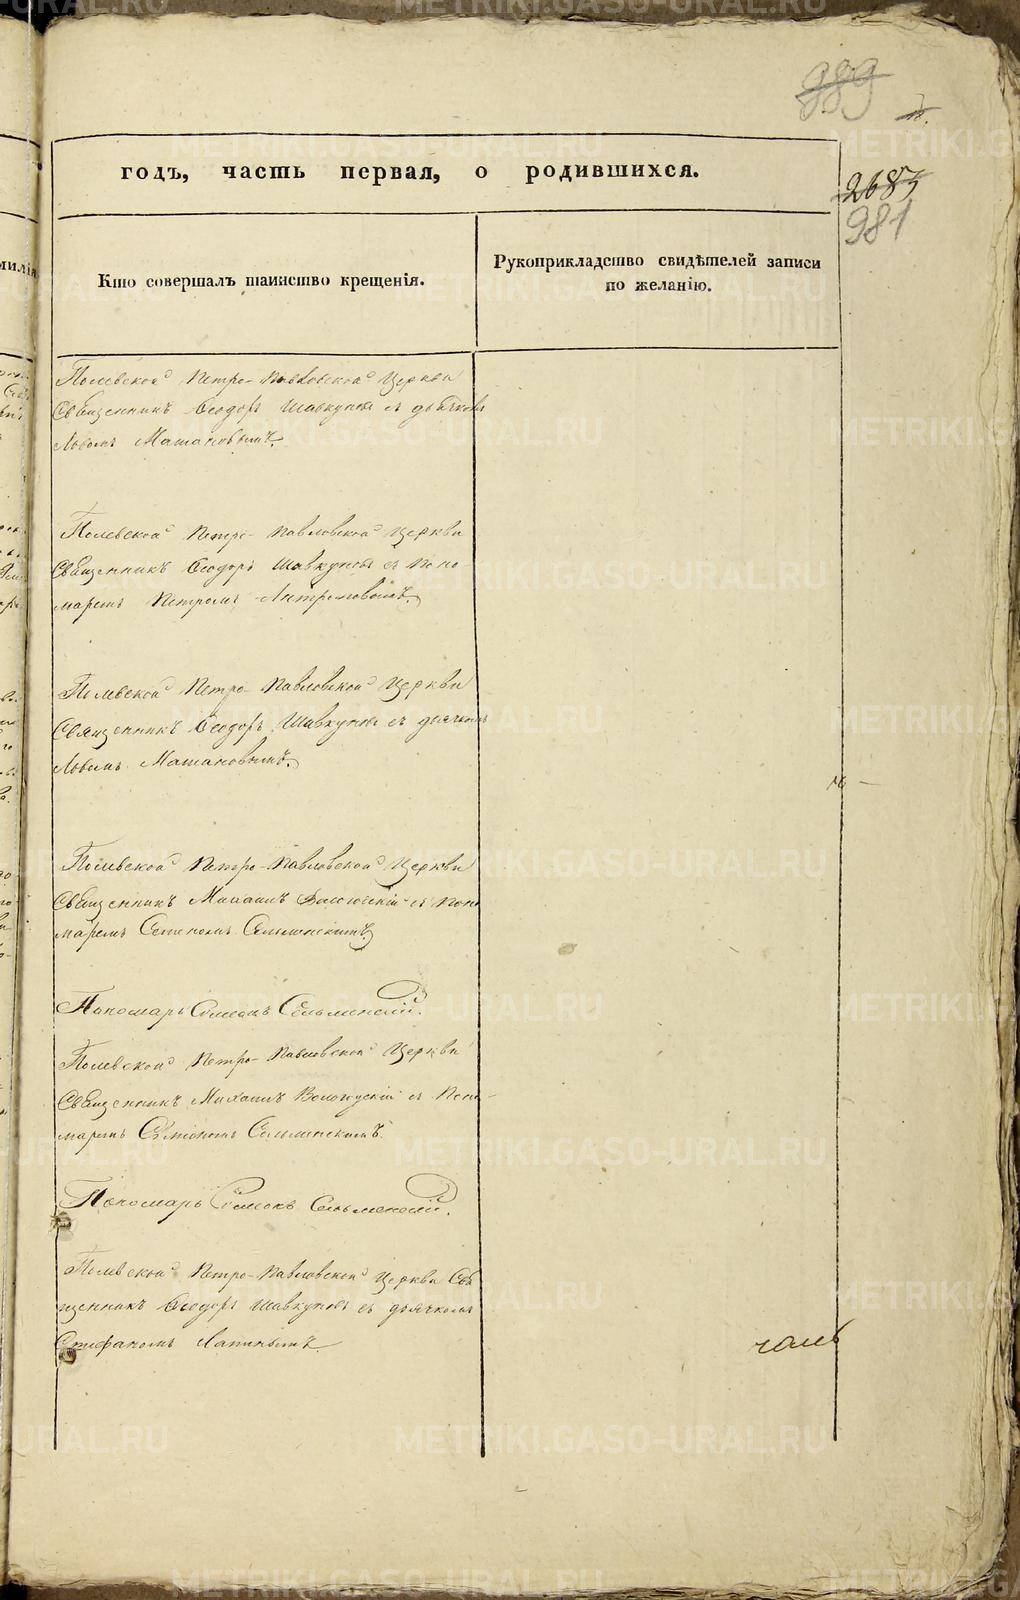 989
2683
981
годъ, часть первая, о родившихся.
Кто совершалъ таинство крещенія.
Рукоприкладство свидѣтелей записи
по желанію.
Полевской Петро-Павловской Церкви
Священникъ Ѳеодоръ Шавкуновъ съ дьячкомъ
Львомъ
Полевской Петро-Павловской Церкви
Священникъ Ѳеодоръ Шавкуновъ съ Поно
маремъ Петромъ
Полевской Петро-Павловской Церкви
Священникъ Ѳеодоръ Шавкуновъ съ дьячкомъ
Львомъ
Полевской Петро-Павловской Церкви
Священникъ Михаилъ съ Поно
маремъ
Пономарь Симеонъ Сельменскій.
Полевской Петро-Павловской Церкви
Священникъ Михаилъ съ Поно-
маремъ Симеономъ Сельменскимъ.
Пономарь Симеонъ Сельменскій.
Полевской Петро-Павловской Церкви Свя
щенникъ Ѳеодоръ Шавкуновъ съ дьячкомъ
Стефаномъ Лапинымъ
METRIKI.GASO-URAL.RU